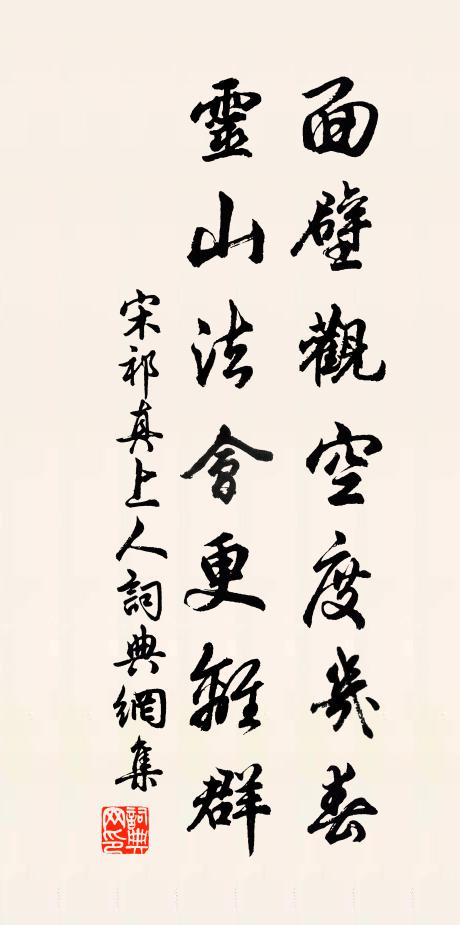 面壁觀空度幾春
靈山法會更離群
宋祁真上人詞典網集
詞典網印